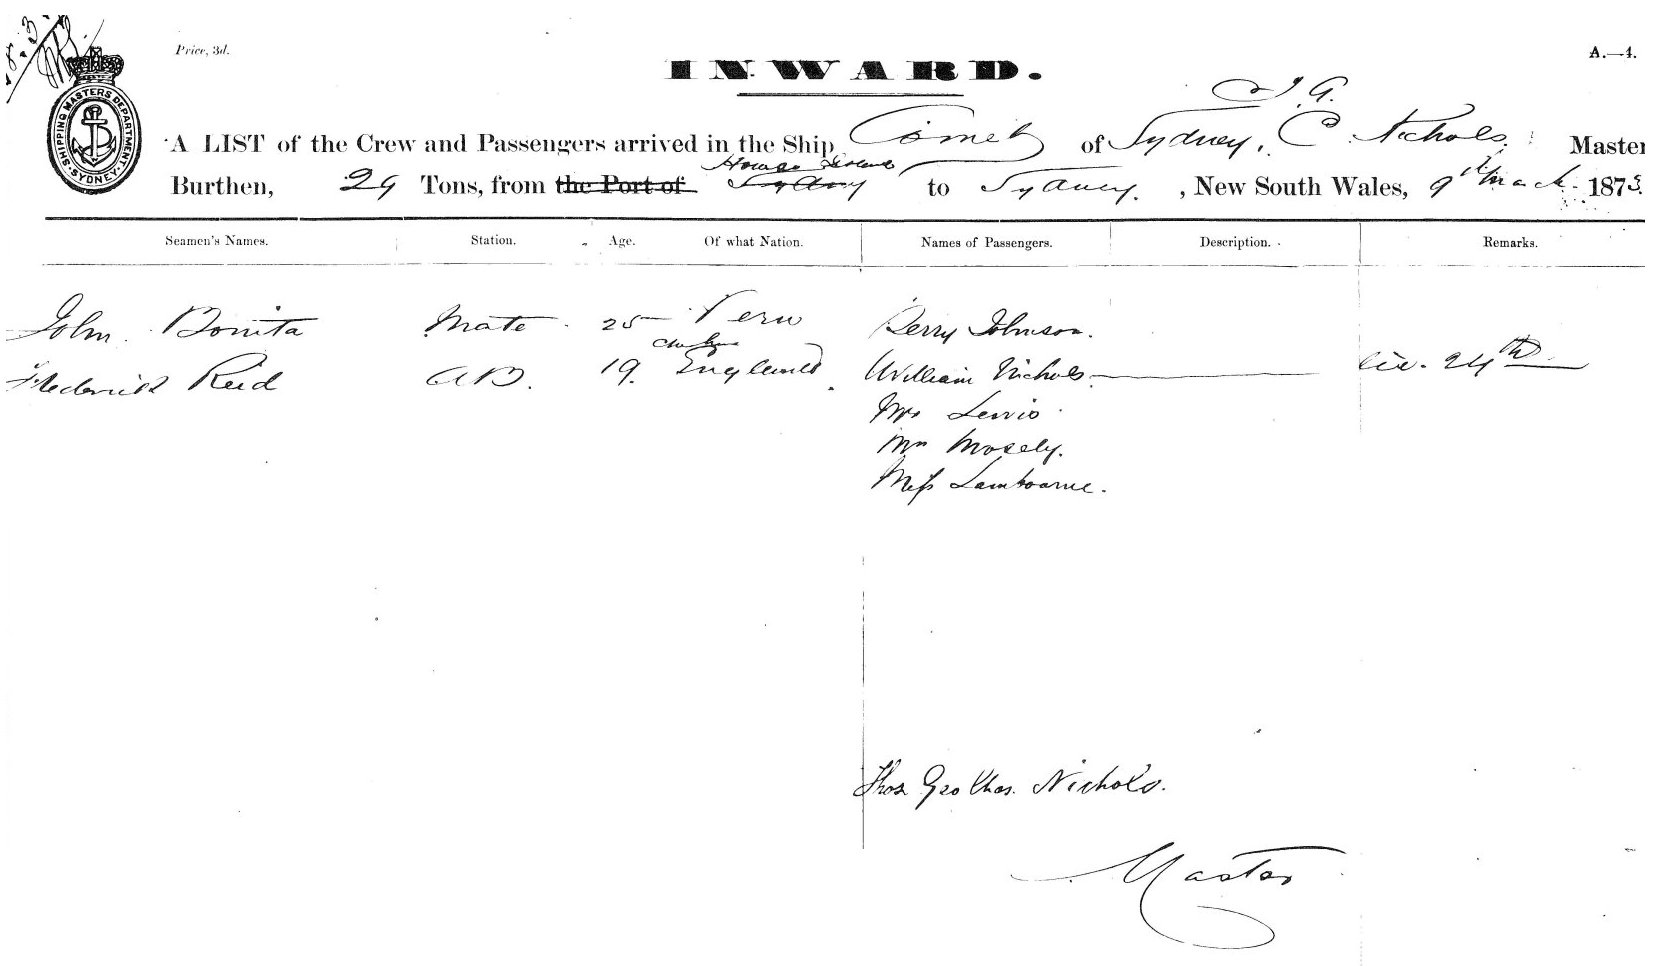 Price, 3d.
A.—4.
INWARD.
SHIPPING MASTERS DEPARTMENT
SYDNEY
T. G.
A LIST of the Crew and Passengers arrived in the Ship Comet of Sydney, C Nichols, Master
Howes Island
Burthen, 29 Tons, from the Port of Sydney to Sydney. , New South Wales, 9th March 1873.
Seamen's Names. Station. Age. Of what Nation. Names of Passengers. Description. Remarks.
John Bonita Mate 25 Peru Perry Johnson.
Frederick Reid AB. 19. England. William Nichols 24th
Mrs Lewis
Mrs Mosely.
Miss Lambourne.
Thos Geo Chas. Nichols.
Master